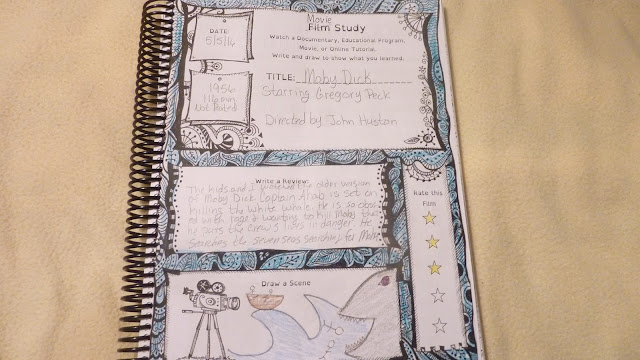 Movie
Film Study
DATE:
5/5/16
Watch a Documentary, Educational Program,
Movie, or Online Tutorial.
Write and draw to show what you learned.
TITLE: Moby Dick
Starring Gregory Peck
1956
116 min
Not Rated
Directed by John Huston
Write a Review:
The kids and I watched the older version
of Moby Dick. Captain Ahab is set on
killing the white whale. He is so
with rage & wanting to kill Moby that
he puts the crew's lives in danger. He
searches the seven seas searching for Moby.
Rate this
Film
Draw a Scene